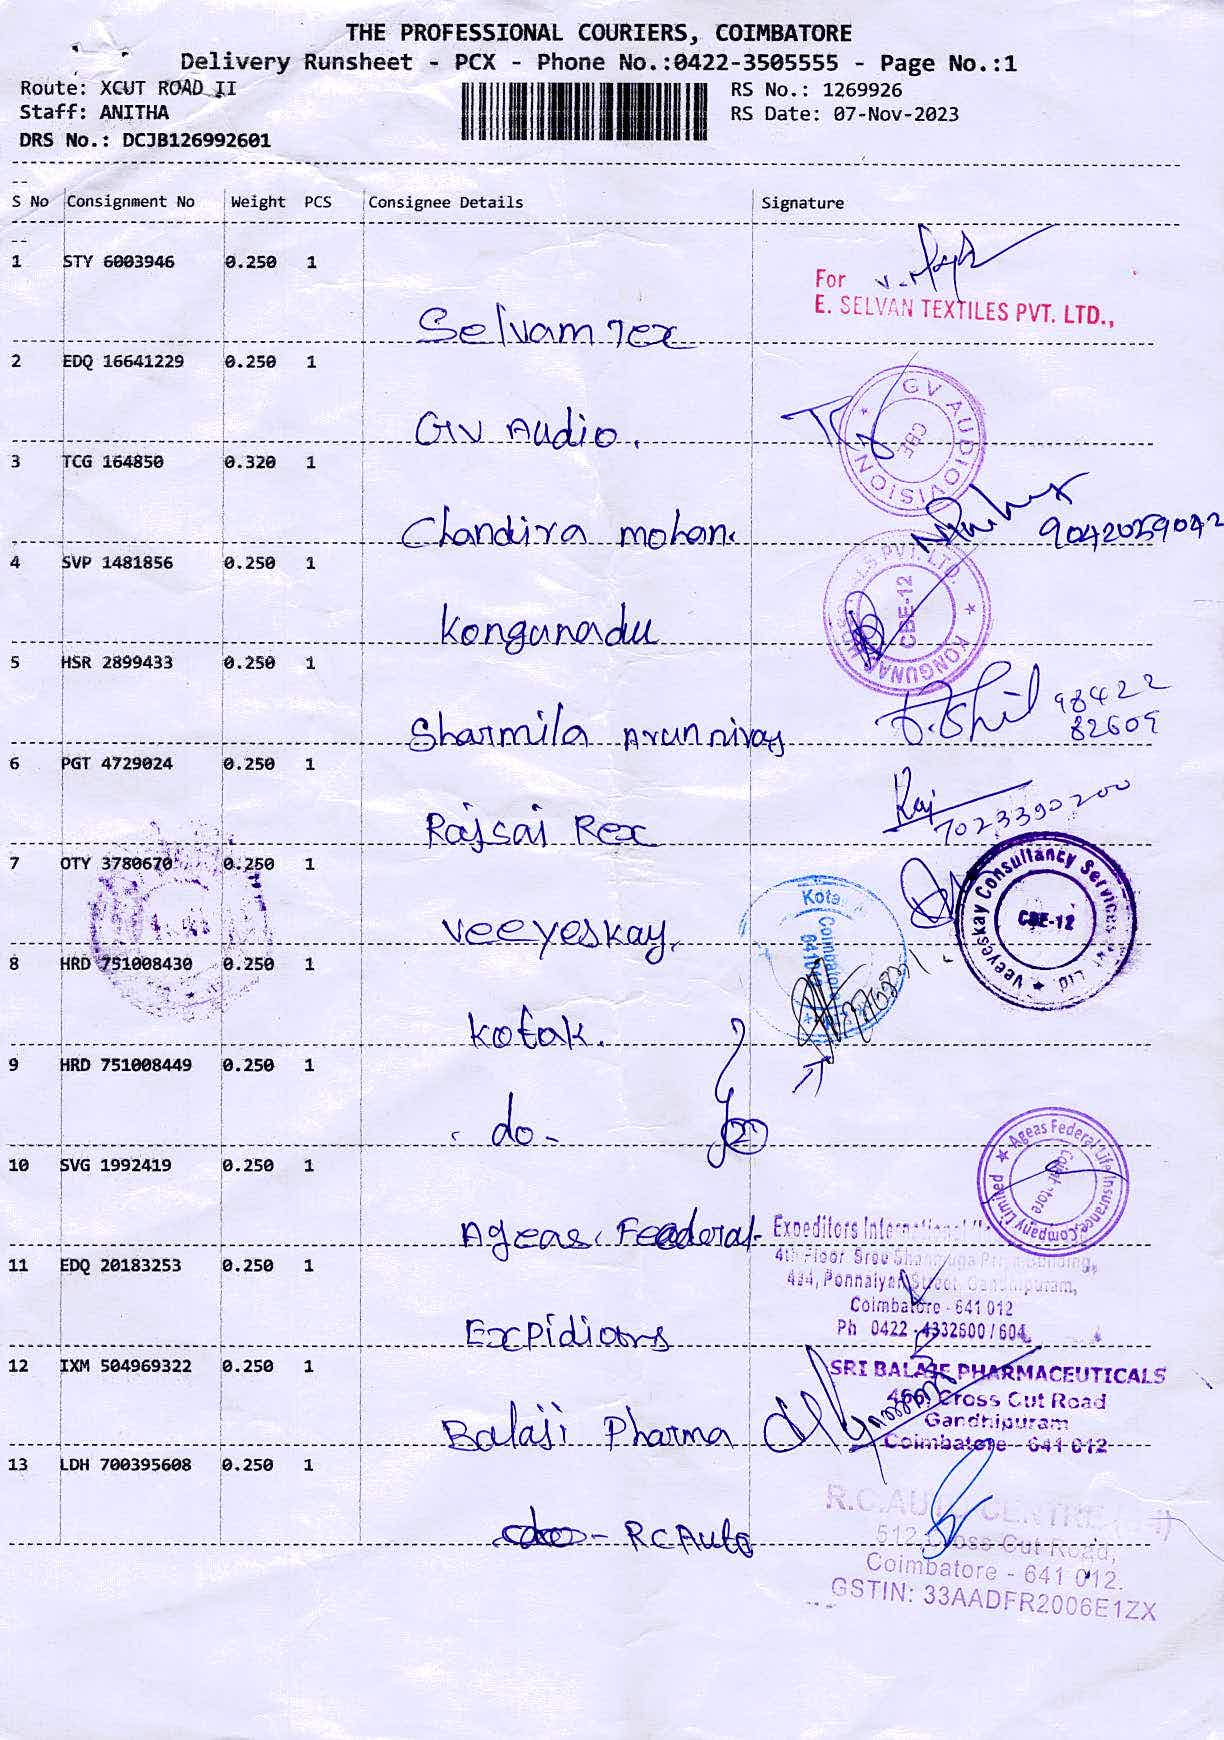 THE PROFESSIONAL COURIERS, COIMBATORE
Delivery Runsheet - PCX - Phone No.:0422-3505555 - Page No.:1
Route: XCUT ROAD II
RS No.: 1269926
Staff: ANITHA
RS Date: 07-Nov-2023
DRS No.: DCJB126992601
S No Consignment No Weight PCS Consignee Details Signature
1 STY 6003946 0.250 1
For
E. SELVAN TEXTILES PVT. LTD.,
Selvam Tex
2 EDQ 16641229 0.250 1
GV AUDIOVISION
CBE
GV Audio.
3 TCG 164850 0.320 1
Chandira mohan.
9042059042
4 SVP 1481856 0.250 1
PVT. LTD.
CBE-12
Kongunadu
5 HSR 2899433 0.250 1
Sharmila Arunnivas
98422
82609
6 PGT 4729024 0.250 1
Raj
7023390200
Rajsai Rex
7 OTY 3780670 0.250 1
Veeyeskay Consultancy Services Pvt Ltd
CBE-12
Veeyeskay.
8 HRD 751008430 0.250 1
Coimbatore
Kotak.
9 HRD 751008449 0.250 1
- do -
10 SVG 1992419 0.250 1
Ageas Federal Life Insurance Company Limited
Coimbatore
Ageas Feaderal
Expeditors International
4th Floor Sree Shanmuga Priya Building,
11 EDQ 20183253 0.250 1
Ponnaiyan Street, Gandhipuram,
Coimbatore - 641 012
Ph 0422 - 4332600 / 604
Expidiors
12 IXM 504969322 0.250 1
SRI BALAJI PHARMACEUTICALS
Cross Cut Road
Gandhipuram
Coimbatore - 641 012
Balaji Pharma
13 LDH 700395608 0.250 1
R.C.AUTO CENTRE
512, Cross Cut Road,
Coimbatore - 641 012.
GSTIN: 33AADFR2006E1ZX
- RC Auto